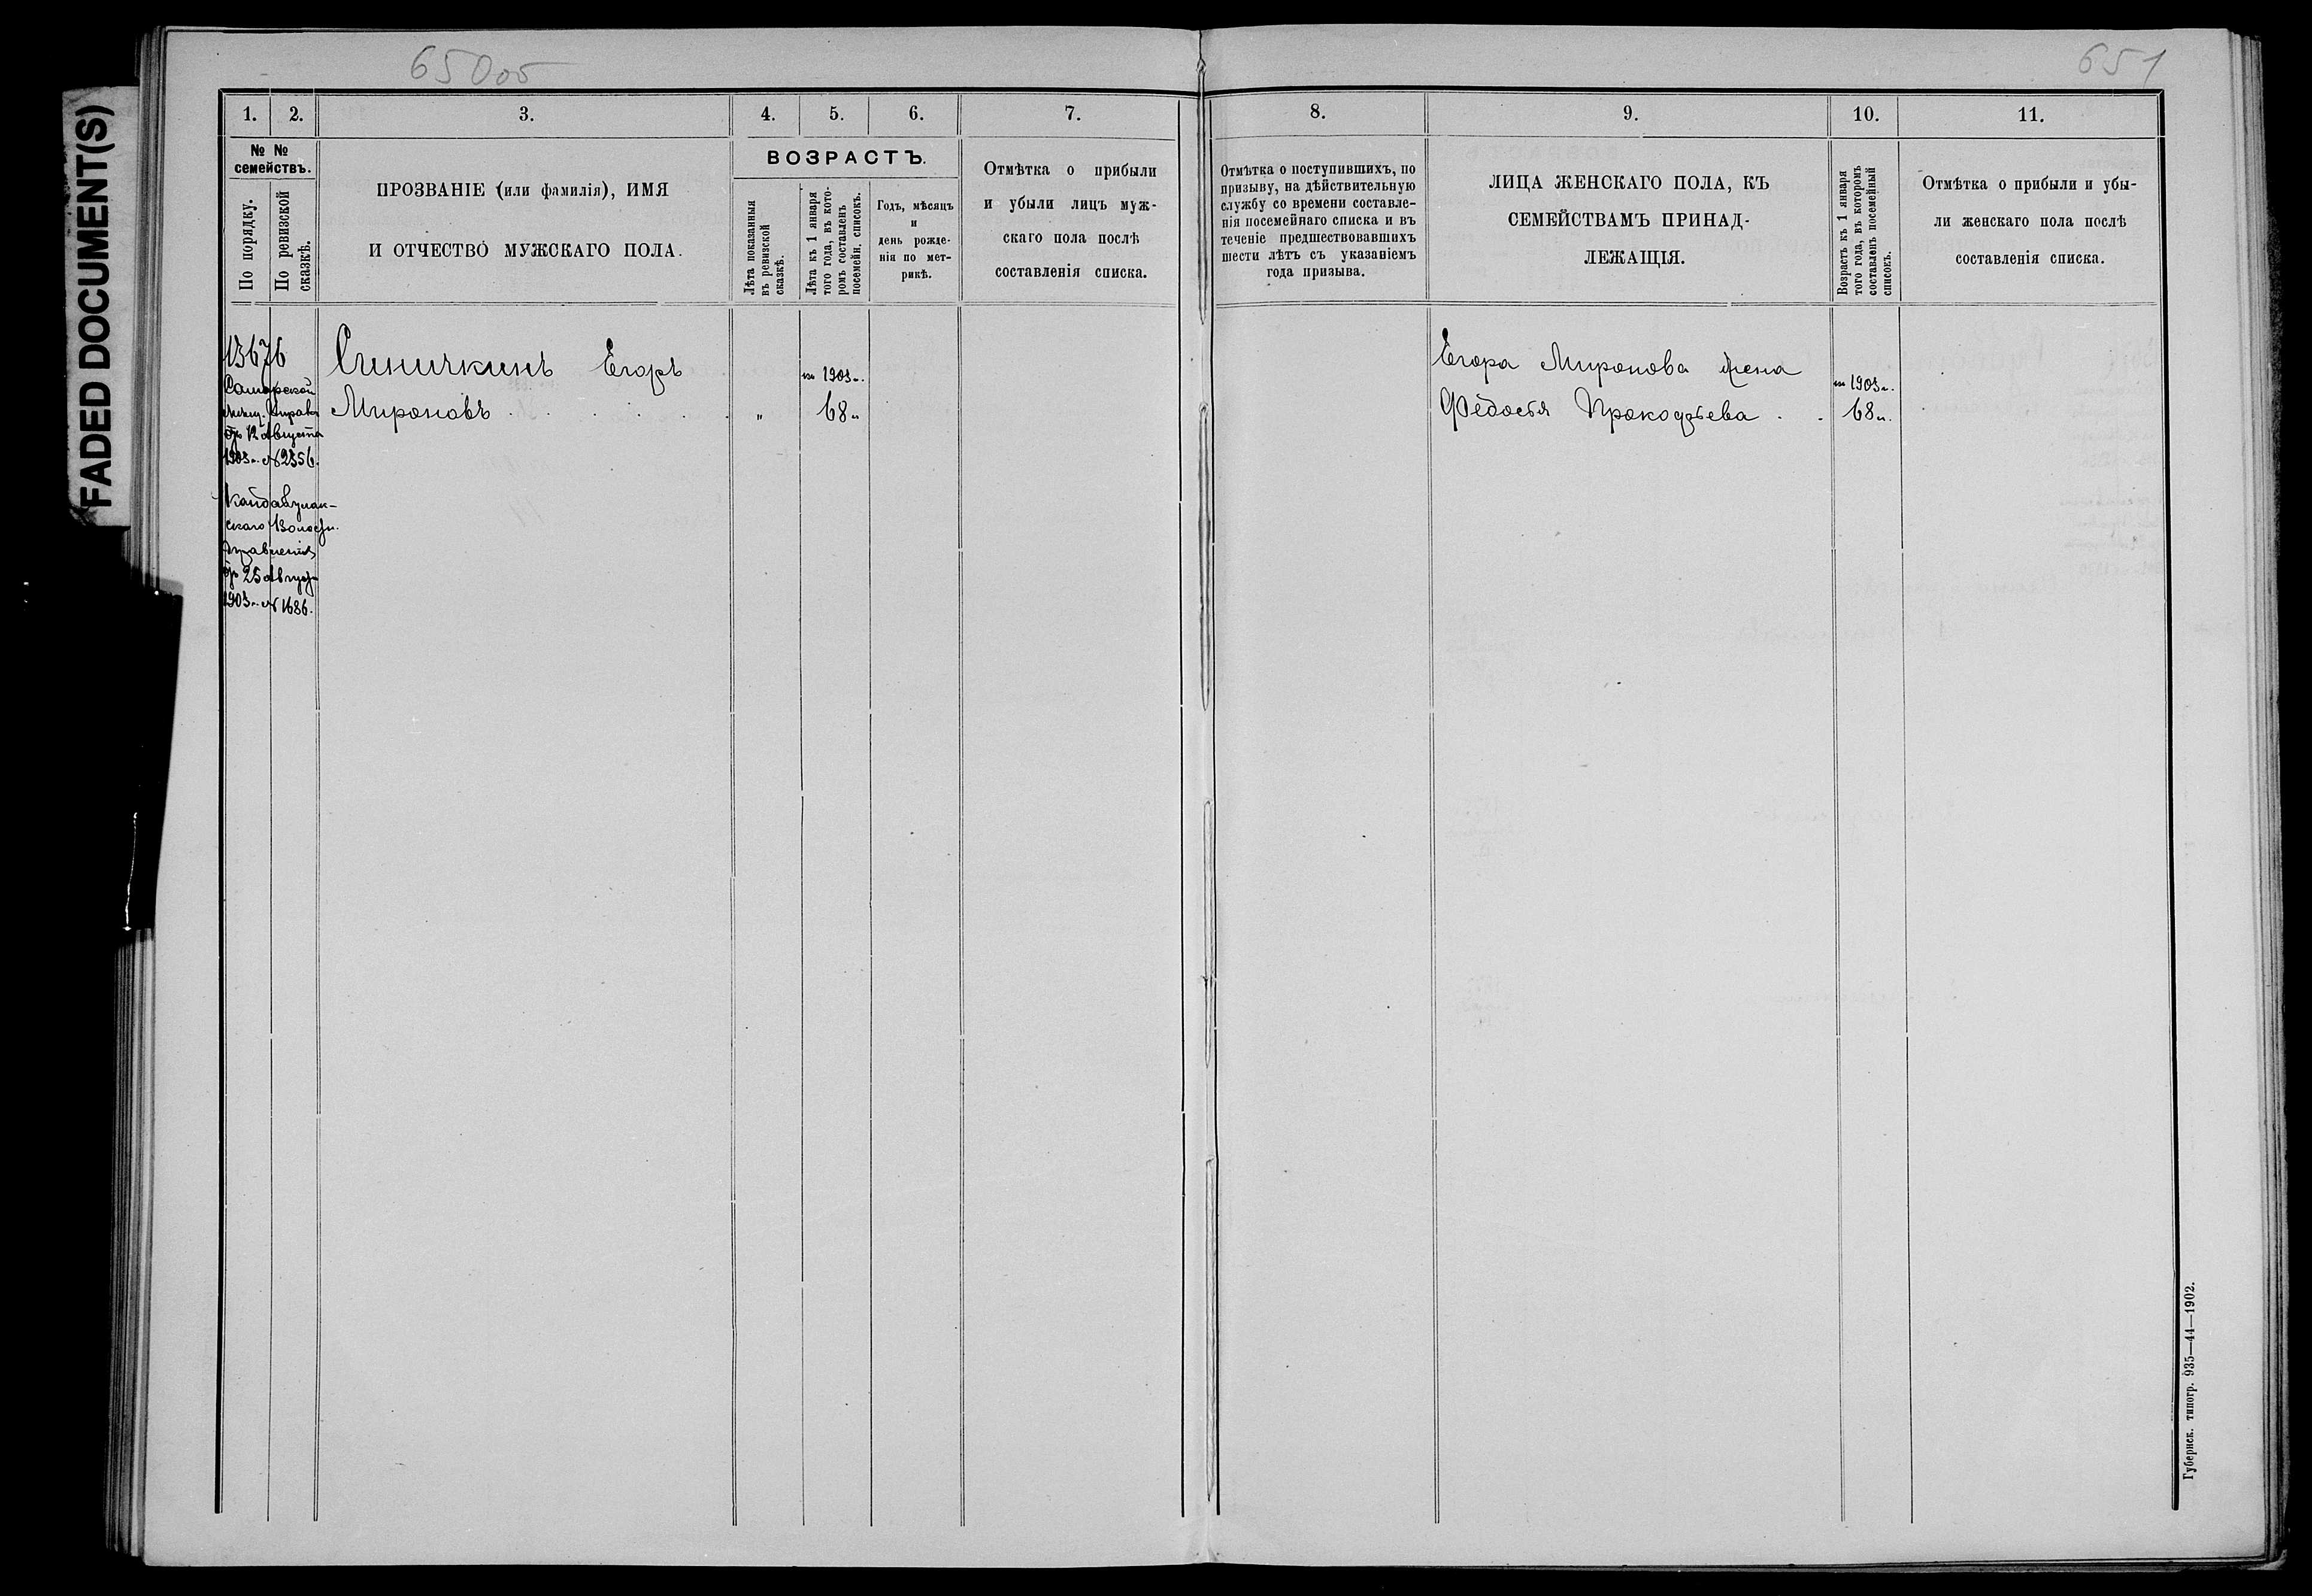 FADED DOCUMENT(S)
650об
651
1. 2. 3. 4. 5. 6. 7. 8. 9. 10. 11.
№ №
семействъ.
По порядку.
По ревизской
сказкѣ.
ПРОЗВАНІЕ (или фамилія), ИМЯ
И ОТЧЕСТВО МУЖСКАГО ПОЛА.
ВОЗРАСТЪ.
Лѣта показанныя
въ ревизской
сказкѣ.
Лѣта къ 1 января
того года, въ кото-
ромъ составленъ
посемейн. списокъ.
Годъ, мѣсяцъ
и
день рожде-
нія по мет-
рикѣ.
Отмѣтка о прибыли
и убыли лицъ муж-
скаго пола послѣ
составленія списка.
Отмѣтка о поступившихъ, по
призыву, на дѣйствительную
службу со времени составле-
нія посемейнаго списка и въ
теченіе предшествовавшихъ
шести лѣтъ съ указаніемъ
года призыва.
ЛИЦА ЖЕНСКАГО ПОЛА, КЪ
СЕМЕЙСТВАМЪ ПРИНАД-
ЛЕЖАЩІЯ.
Возрастъ къ 1 января
того года, въ которомъ
составленъ посемейный
списокъ.
Отмѣтка о прибыли и убы-
ли женскаго пола послѣ
составленія списка.
13676
Самарской
Мѣщ. Управы
отъ 12 Августа
1903 г. № 2356.
скаго Волостн.
Правленія
отъ 25 Августа
1903 г. № 1686.
Синичкинъ Егоръ
Мироновъ . . . . . „
1903 г.
68 л.
Егора Миронова жена
Федосья Прокофьева . .
1903 г.
68 л.
Губернск. типогр. 935—44—1902.